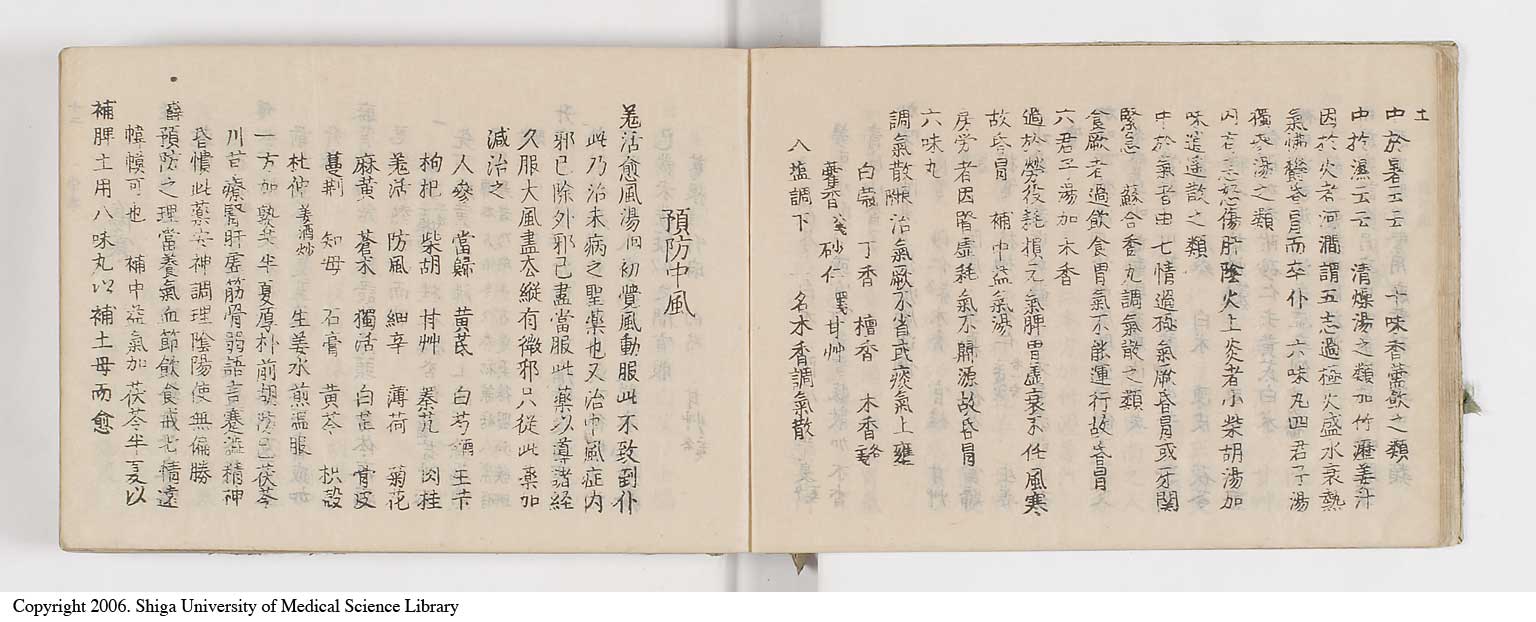 中於暑云云 十味香薷飲之類
中於濕云云 清燥湯之類加竹瀝姜汁
因於火者河澗謂五志過極火盛水衰熱
氣怫欝昏冒而卒仆 六味丸四君子湯
獨参湯之類
内有恚怒傷肝陰火上炎者小柴胡湯加
味逍遥散之類
中於氣者由七情過極氣厥昏冒或牙関
緊急 蘇合香丸調氣散之類
食厥者過飲食胃氣不能運行故昏冒
六君子湯加木香
過於勞役耗損元氣脾胃虚衰不任風寒
故昏冒 補中益氣湯
房労者因腎虚耗氣不歸源故昏冒
六味丸
調氣散 治氣厥不省或痰氣上壅
白蔻 丁香 檀香 木香
藿香 砂仁 甘艸
入塩調下 名木香調氣散
預防中風
羗活愈風湯 初覺風動服此不致到仆
此乃治未病之聖薬也又治中風症内
邪已除外邪已盡當服此薬以導諸経
久服大風盡去縦有微邪只從此薬加
減治之
人参 當歸 黄芪 白芍 生芐
枸杞 柴胡 甘艸 秦艽 肉桂
羗活 防風 細辛 薄荷 菊花
麻黄 蒼朮 獨活 白芷 骨皮
蔓荊 知母 石膏 黄芩 枳殻
杜仲 姜酒炒 生姜水煎温服
一方加熟芐半夏厚朴前胡防已茯苓
川芎 療腎肝虚筋骨弱語言蹇澁精神
昏憒此薬安神調理陰陽使無偏勝
預防之理當養氣血節飲食戒七情遠
幃幙可也 補中益氣加茯苓半夏以
補脾土用八味丸以補土母而愈